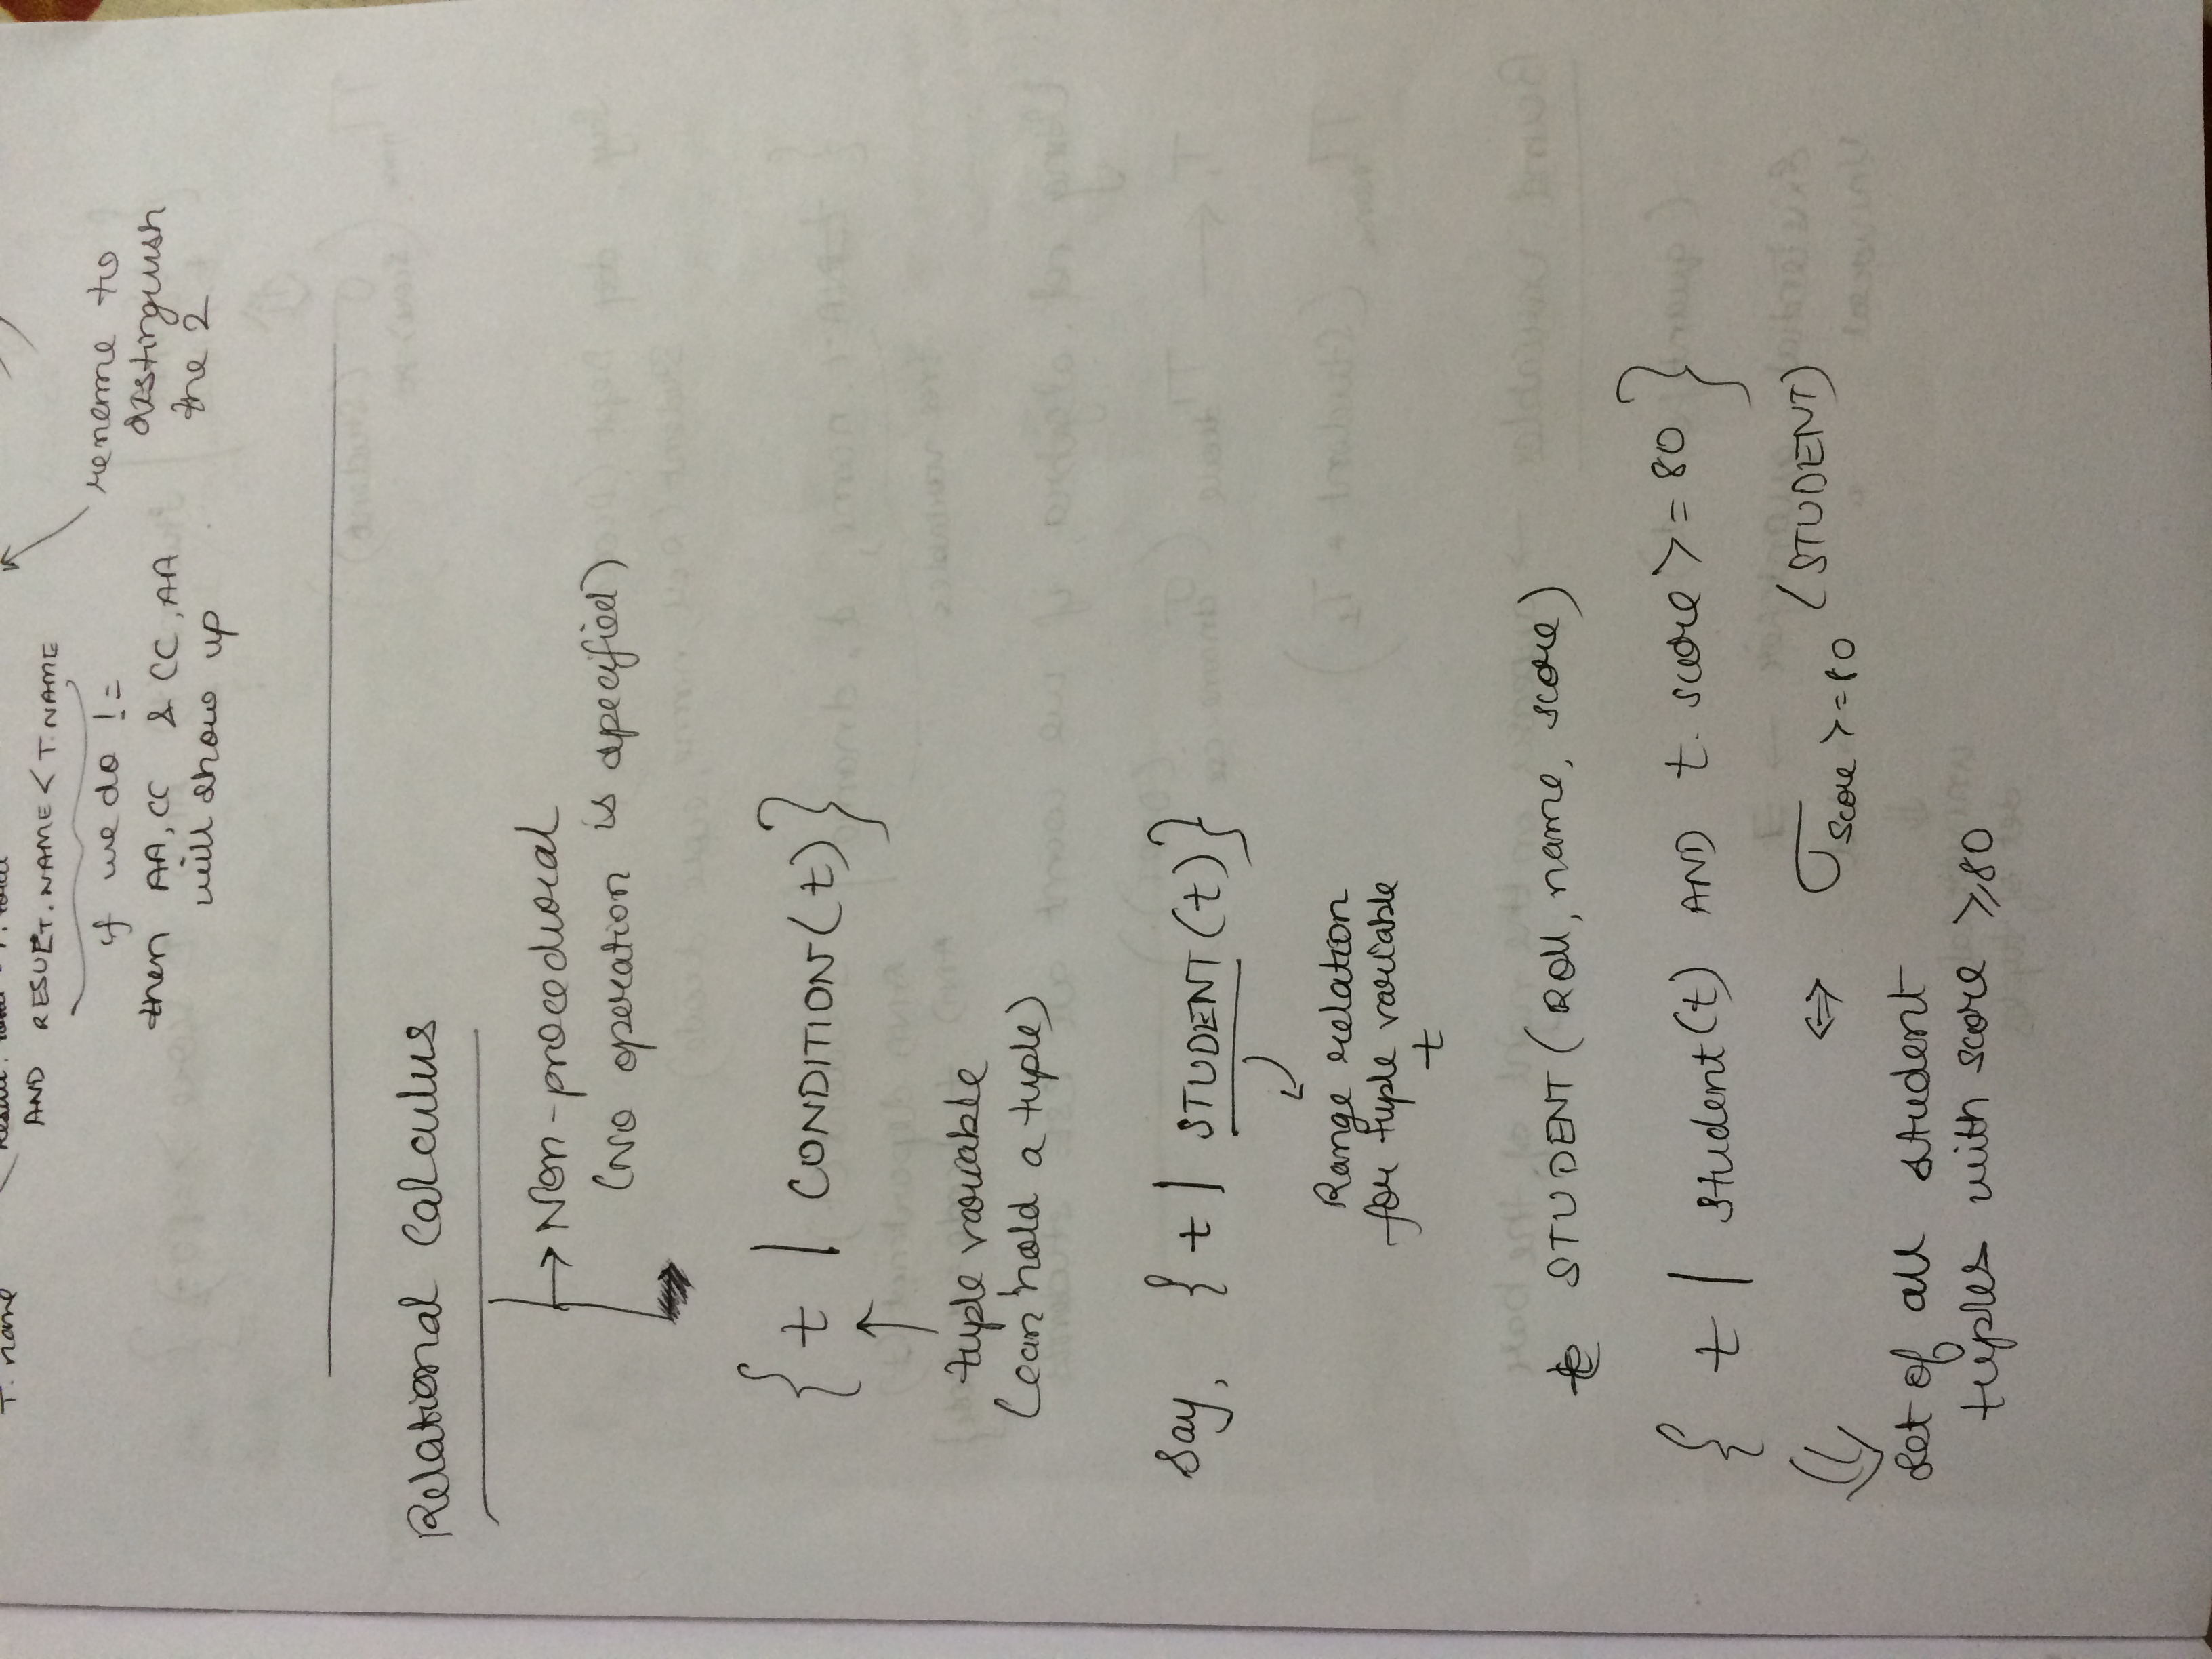 T. name
AND RESULT.NAME < T.NAME
if we do !=
then AA, CC & CC, AA
will show up
rename to
distinguish
the 2
Relational Calculus
→ Non-procedural
(No operation is specified)
{ t | CONDITION(t) }
tuple variable
(can hold a tuple)
Say, { t | STUDENT(t) }
Range relation
for tuple variable
t
STUDENT (Roll, name, score)
{ t | Student(t) AND t. score >= 80 }
⇔ σ score >= 80 (STUDENT)
Set of all student
tuples with score ≥ 80